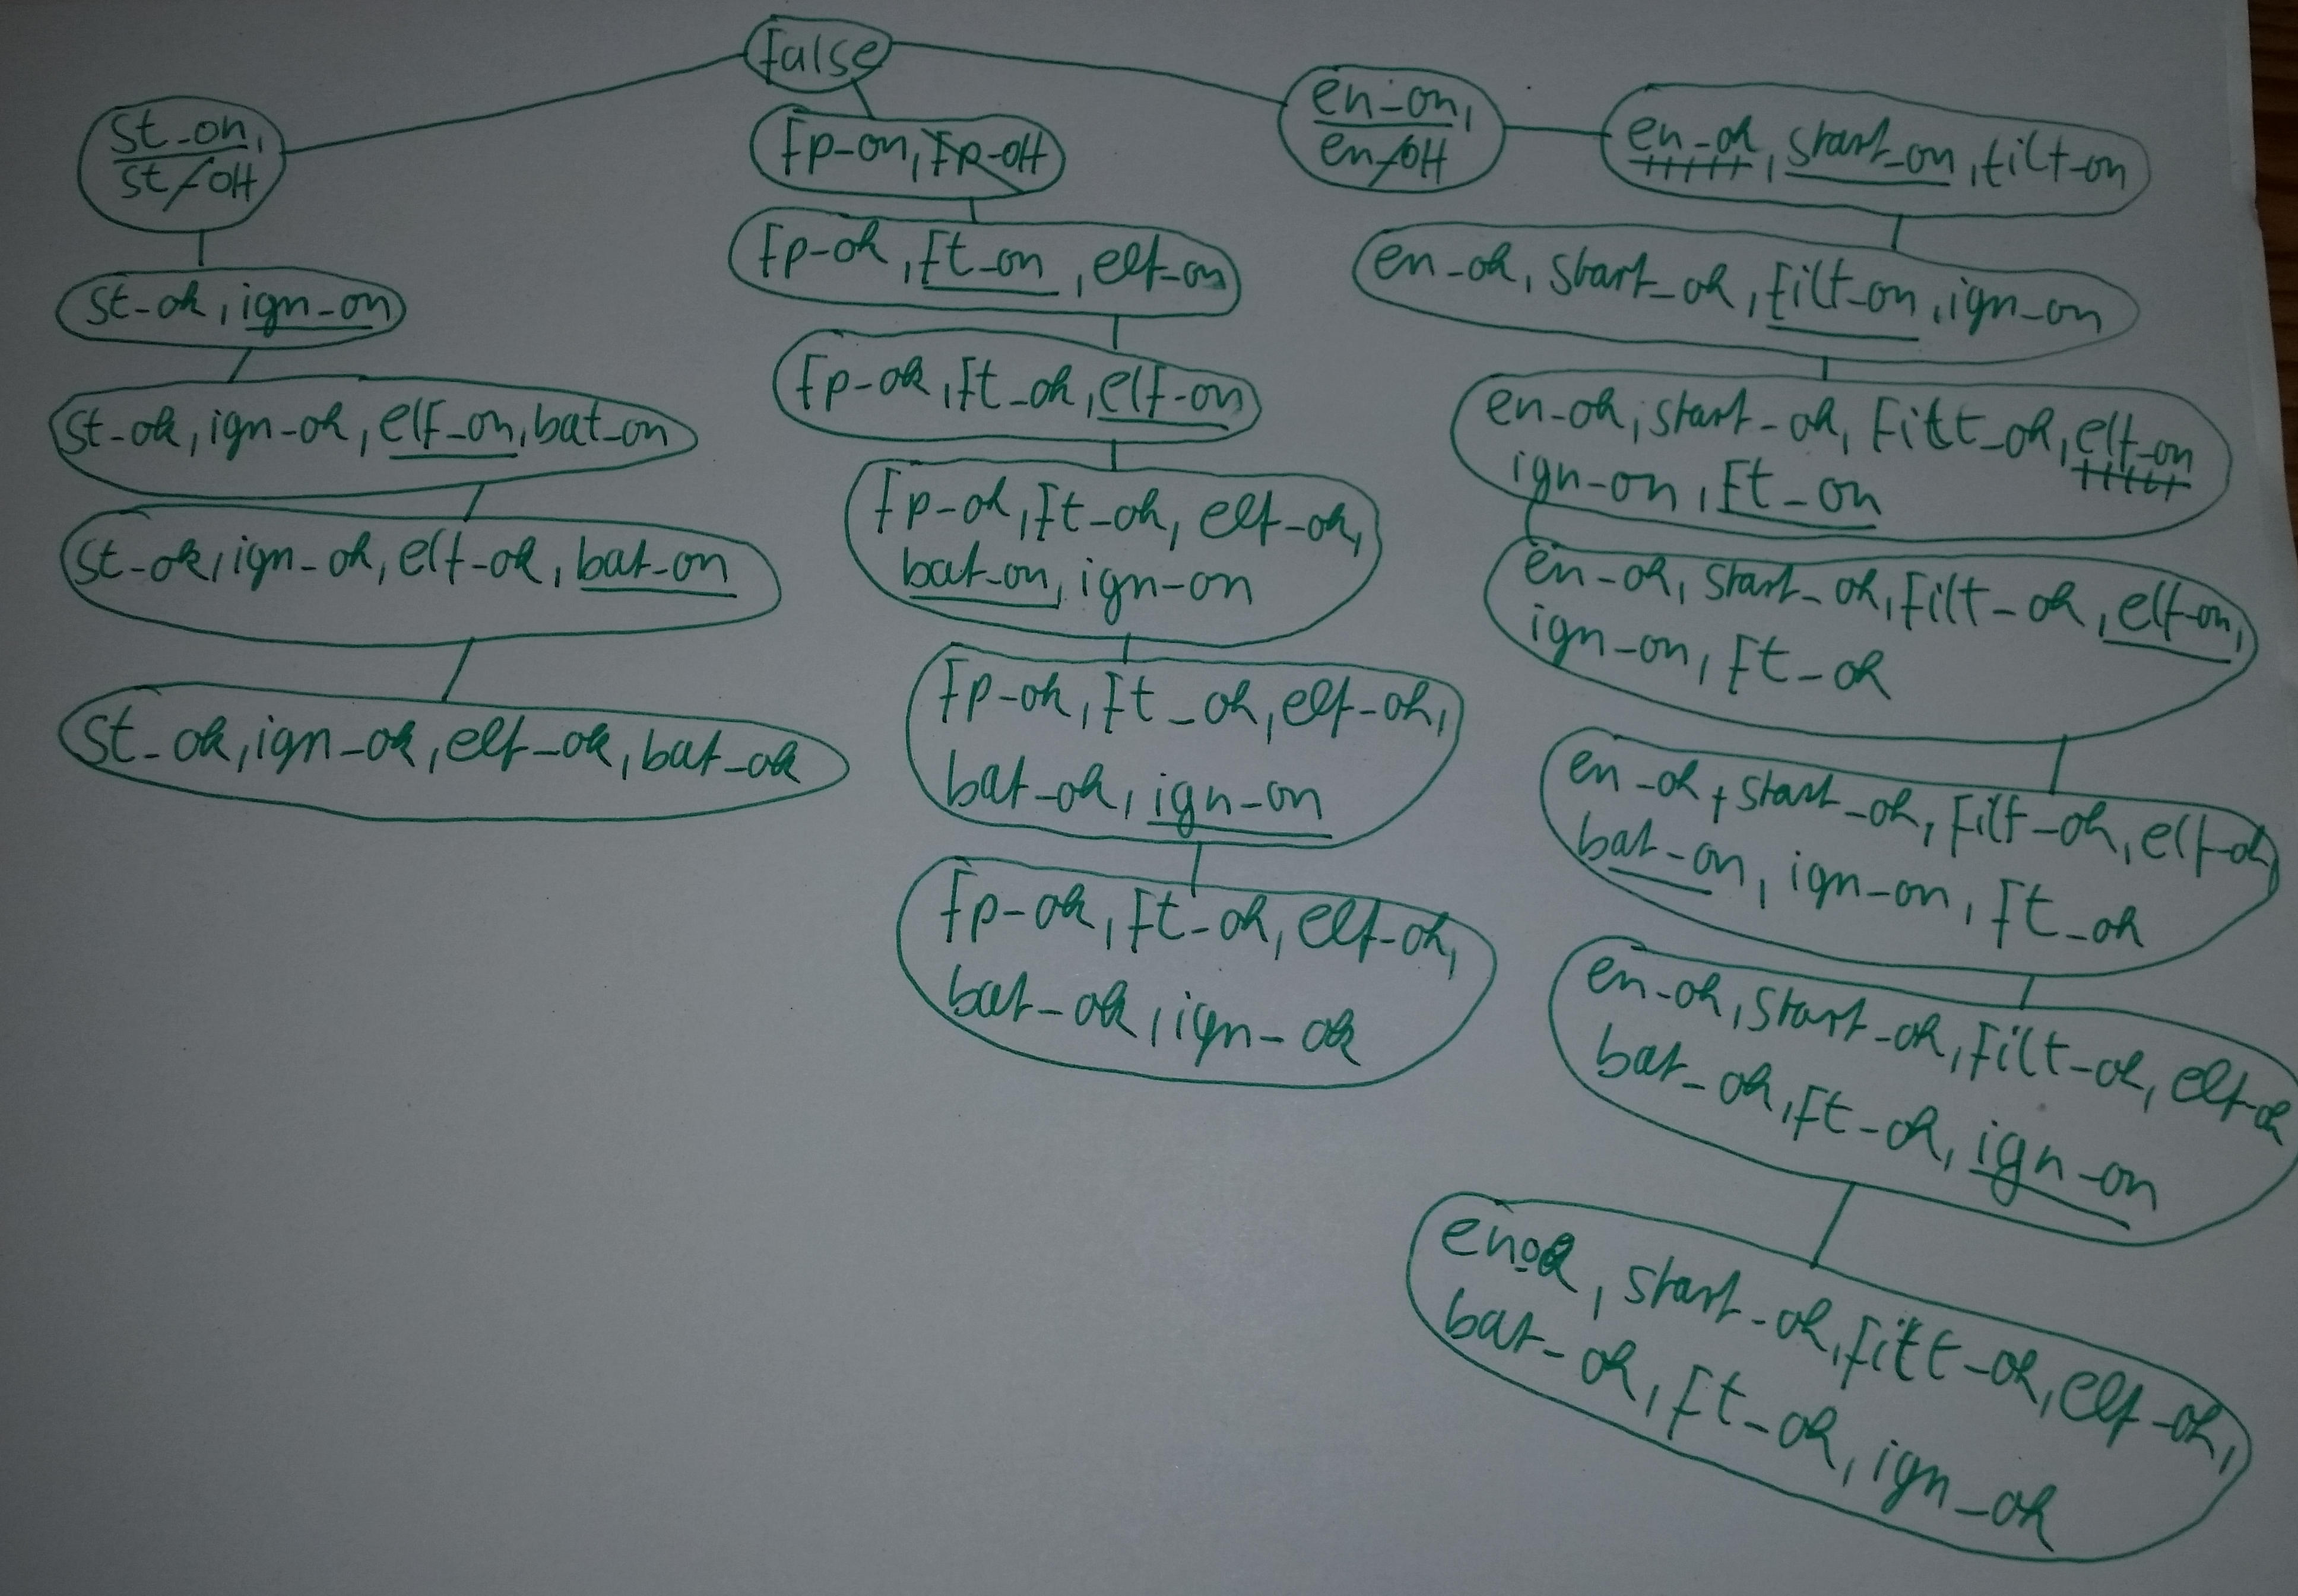 false
st_on,
st/off
st-ok, ign-on
st-ok, ign-ok, elf_on, bat_on
st-ok, ign-ok, elf-ok, bat-on
st-ok, ign-ok, elf-ok, bat-ok
fp-on, fp-off
fp-ok, ft_on, elf-on
fp-ok, ft-ok, elf-on
fp-ok, ft-ok, elf-ok,
bat-on, ign-on
fp-ok, ft_ok, elf-ok,
bat-ok, ign-on
fp-ok, ft-ok, elf-ok,
bat-ok, ign-ok
en-on,
en/off
en-ok, start_on, filt-on
en-ok, start_ok, filt-on, ign-on
en-ok, start-ok, filt-ok, elf-on
ign-on, ft-on
en-ok, start-ok, filt-ok, elf-on,
ign-on, ft-ok
en-ok, start-ok, filt-ok, elf-ok
bat-on, ign-on, ft-ok
en-ok, start-ok, filt-ok, elf-ok
bat-ok, ft-ok, ign-on
en_ok, start-ok, filt-ok, elf-ok,
bat-ok, ft-ok, ign-ok